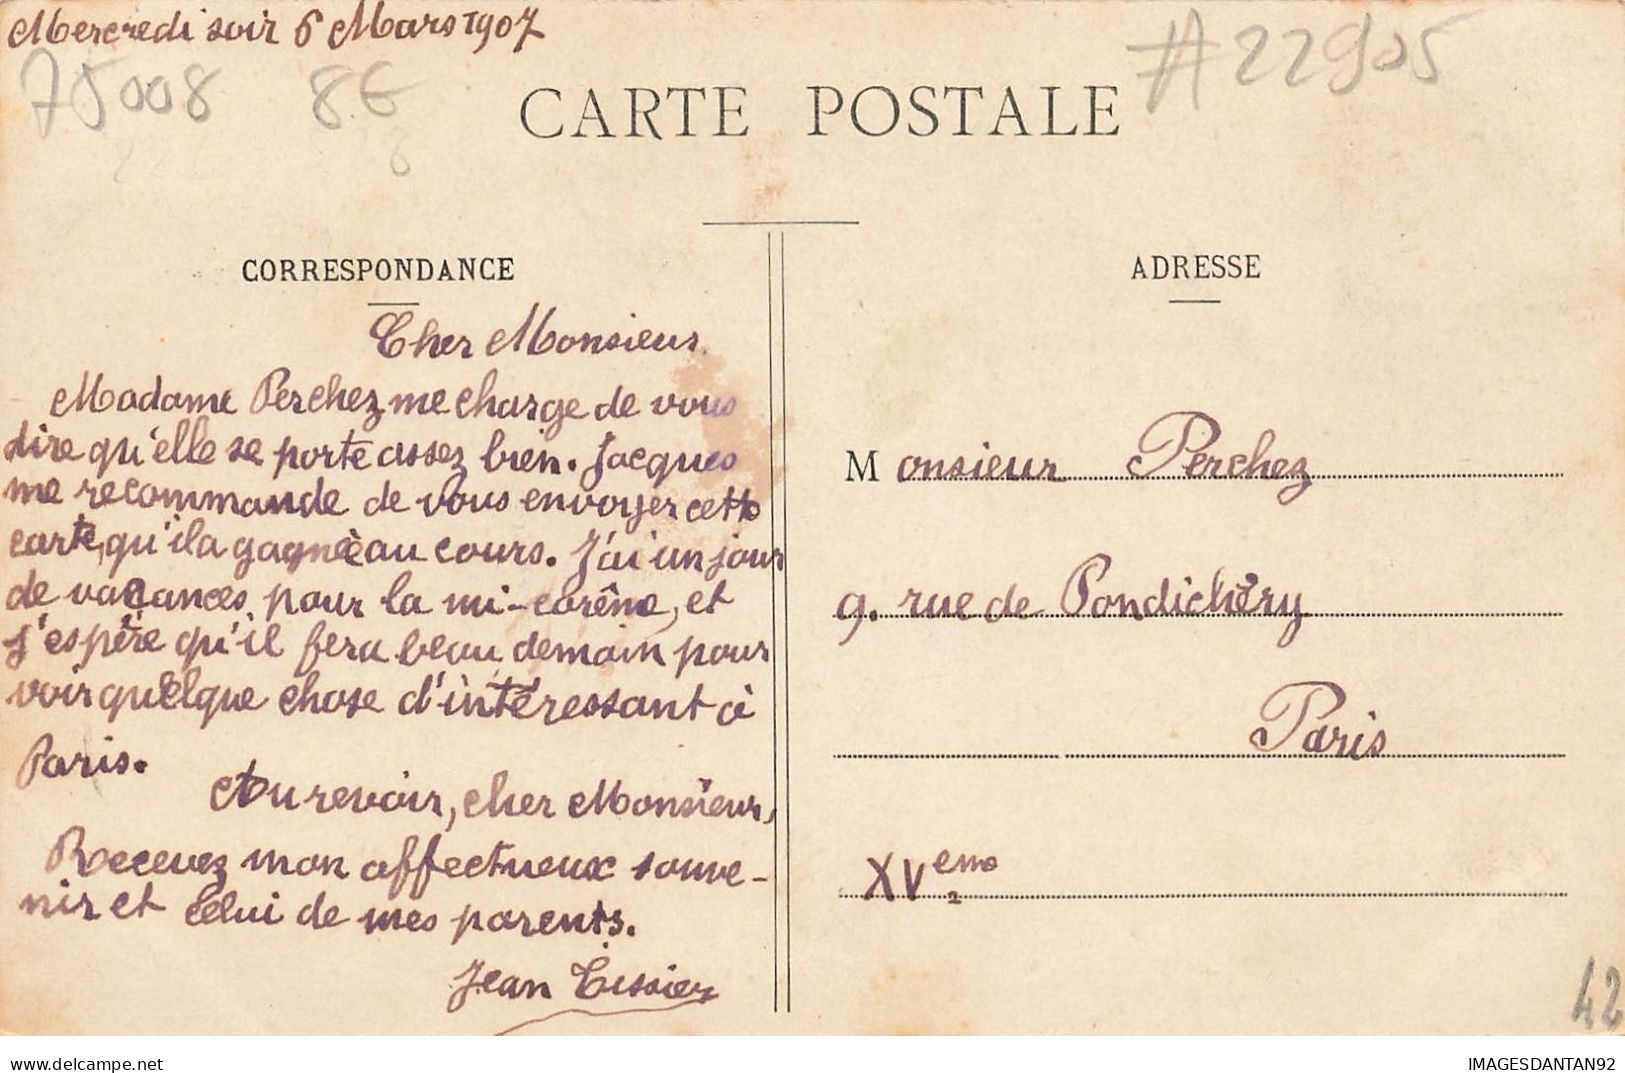 Mercredi soir 6 Mars 1907
75008 8E
#22905
CARTE POSTALE
CORRESPONDANCE
Cher Monsieur
Madame Perchez me charge de vous
dire qu'elle se porte assez bien. Jacques
me recommande de vous envoyer cette
carte, qu'il a gagnée au cours. J'ai un jour
de vacances, pour la mi-carême, et
j'espère qu'il fera beau demain pour
voir quelque chose d'intéressant à
Paris.
Au revoir, cher Monsieur,
Recevez mon affectueux souve-
nir et celui de mes parents.
Jean Tissier
ADRESSE
Monsieur Perchez
9. rue de Pondichéry
Paris
XVeme
42
delcampe.net
IMAGESDANTAN92